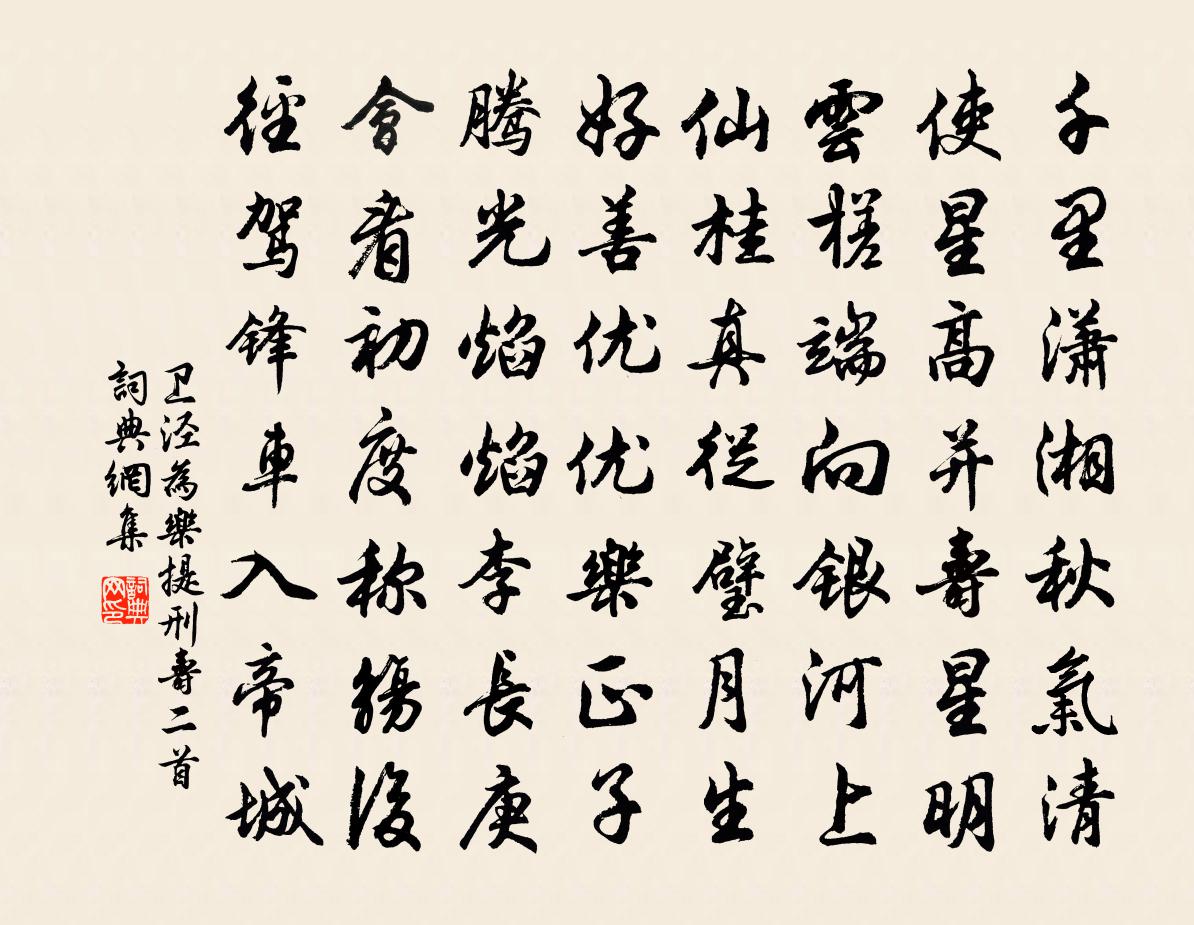 千里瀟湘秋氣清
使星高并壽星明
雲槎端向銀河上
仙桂真從璧月生
好善优优樂正子
騰光焰焰李長庚
會看初度称觴後
徑驾锋車入帝城
卫泾為樂提刑壽二首
詞典網集
詞典网印